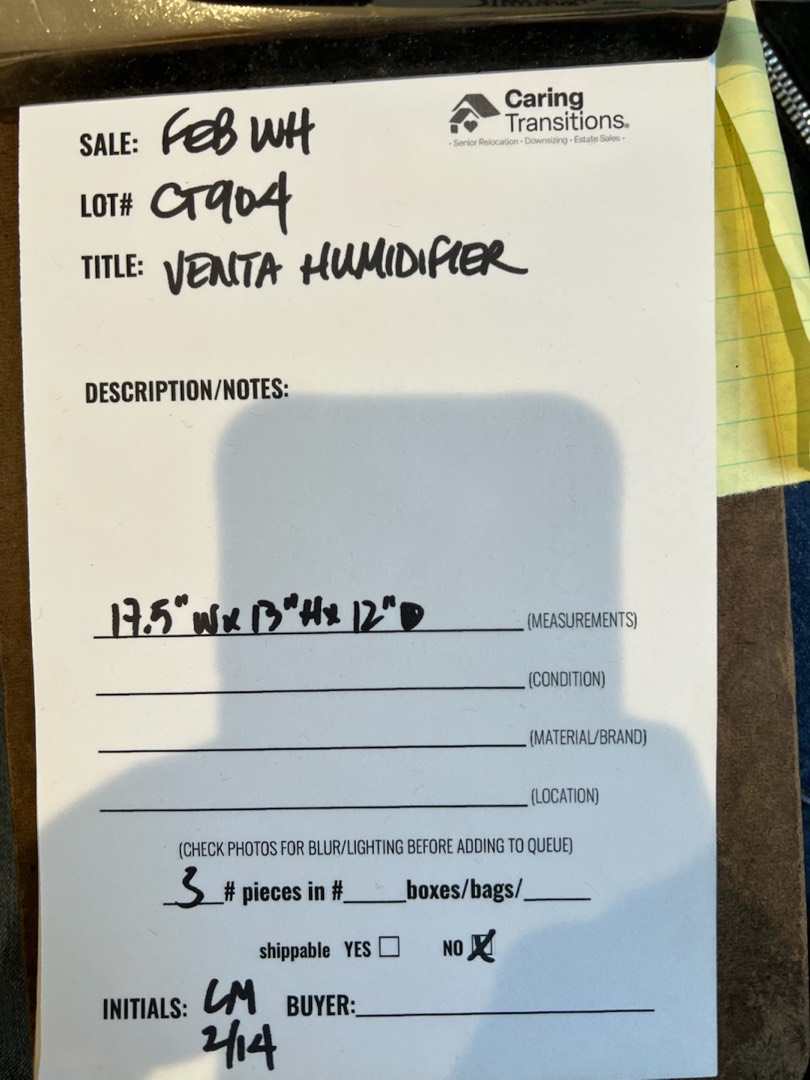 Caring
Transitions.
• Senior Relocation • Downsizing • Estate Sales •
SALE: FEB WH
LOT# CT904
TITLE: VENTA HUMIDIFIER
DESCRIPTION/NOTES:
17.5" W x 13" H x 12" D (MEASUREMENTS)
(CONDITION)
(MATERIAL/BRAND)
(LOCATION)
(CHECK PHOTOS FOR BLUR/LIGHTING BEFORE ADDING TO QUEUE)
3 # pieces in #_____boxes/bags/_____
shippable YES ☐ NO ☒
INITIALS: LM BUYER:
2/14